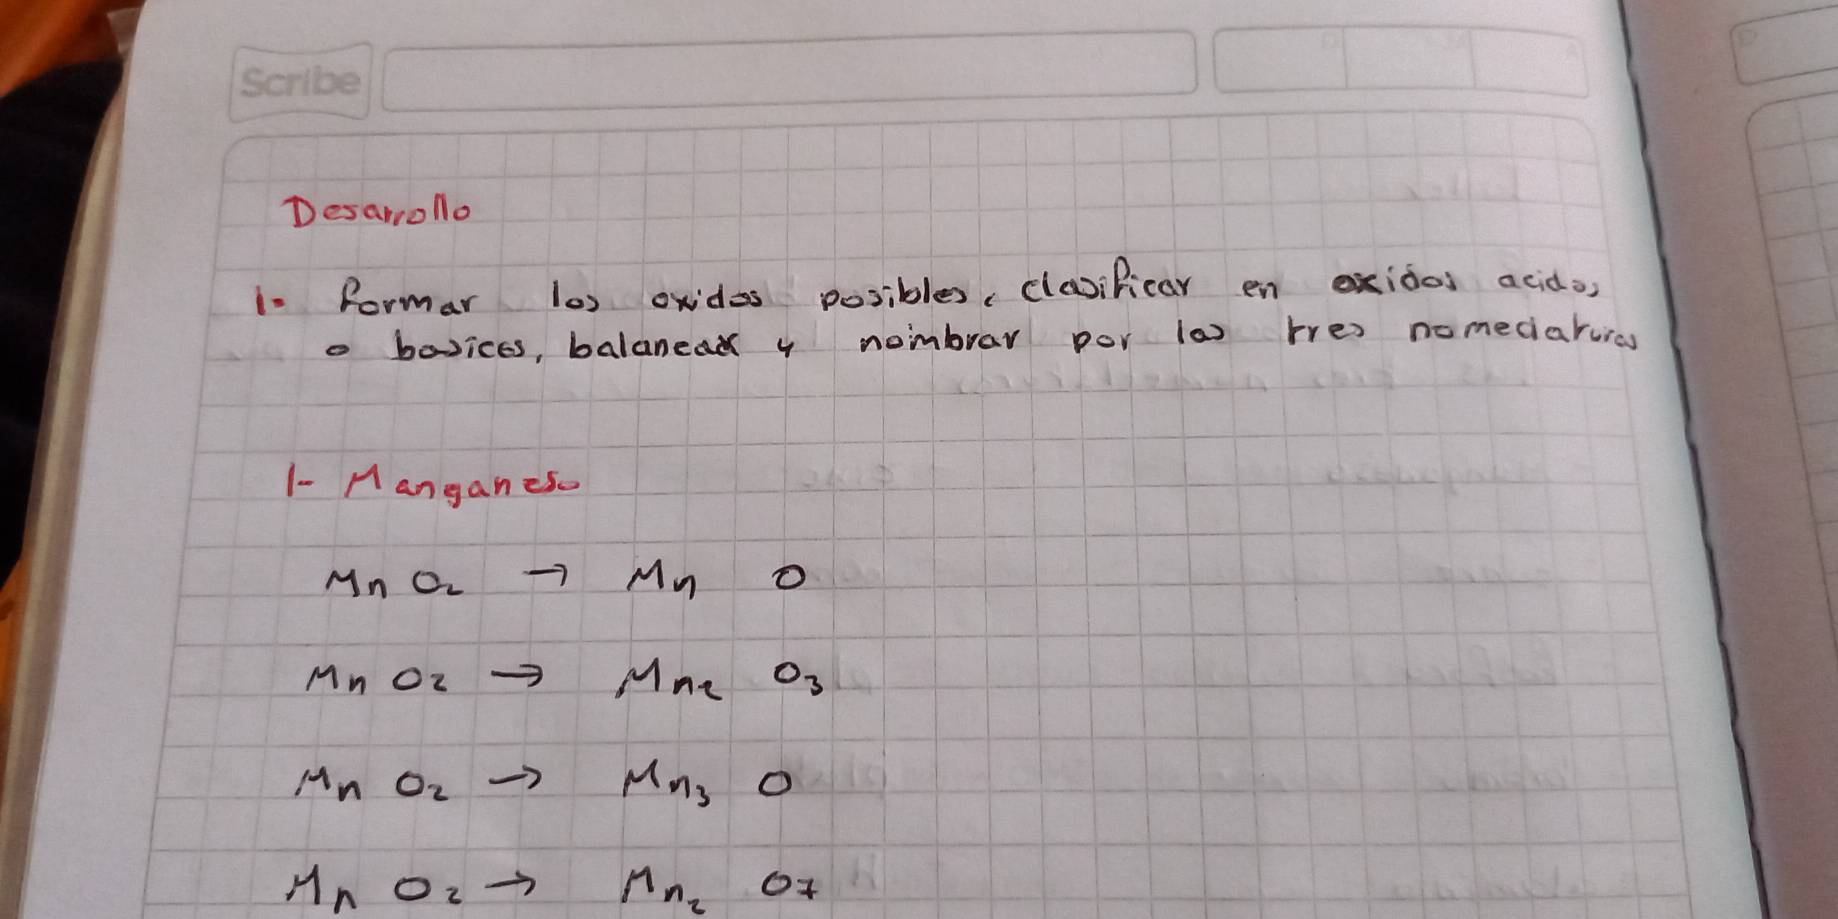 Scribe
Desarrollo
1. formar los oxidos posibles, clasificar en oxidos acidos
o basicos, balancear y noimbrar por las tres nomeclaturas
1- Manganeso
Mn O2 → Mn O
Mn O2 → Mn2 O3
Mn O2 → Mn3 O
Mn O2 → Mn2 O7